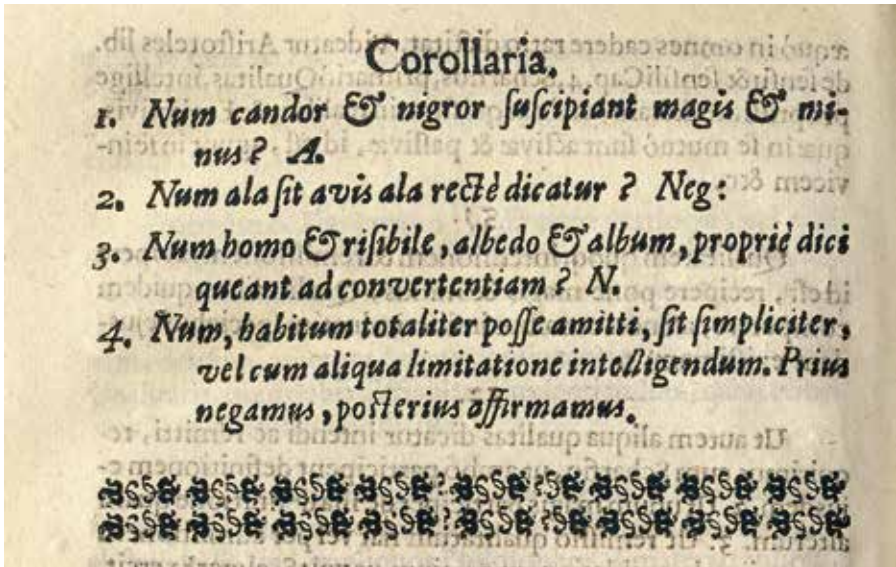 Corollaria.
1. Num candor & nigror ſuſcipiant magis & mi-
nus? A.
2. Num ala ſit avis ala rectè dicatur ? Neg:
3. Num homo & riſibile, albedo & album, propriè dici
queant ad convertentiam ? N.
4. Num, habitum totaliter poſſe amitti, ſit ſimpliciter,
vel cum aliqua limitatione intelligendum. Prius
negamus, poſterius affirmamus.